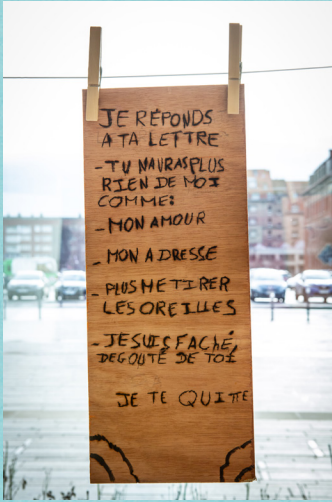 JE RÉPONDS
A TA LETTRE
- TU NAURAS PLUS
RIEN DE MOI
COMME:
- MON AMOUR
- MON ADRESSE
- PLUS ME TIRER
LES OREILLES
- JE SUIS FACHÉ,
DEGOUTÉ DE TOI
JE TE QUITTE